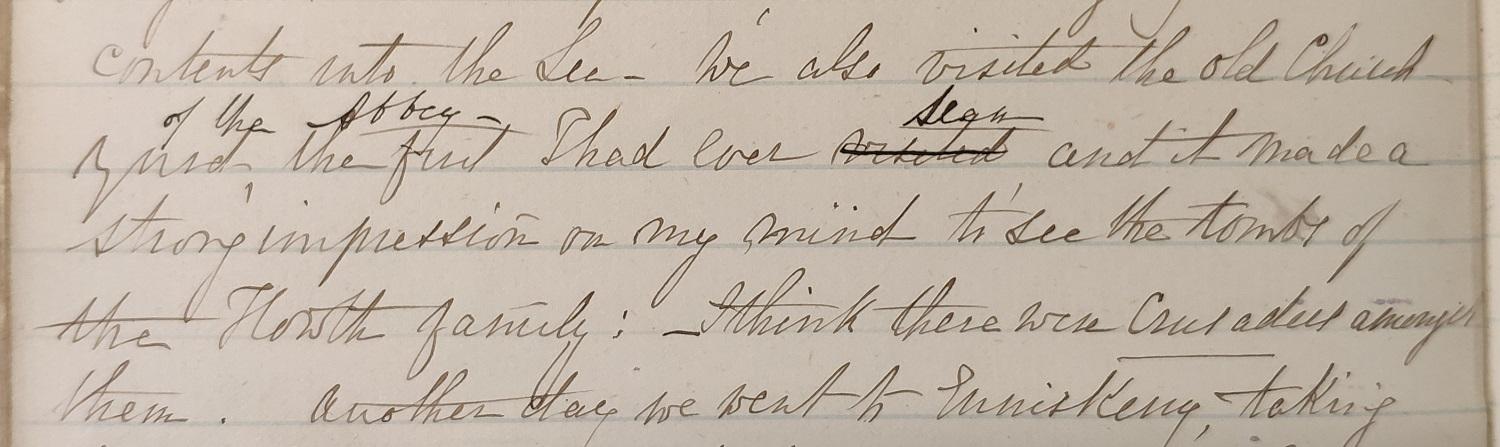 contents into the Sea - We also visited the old Church
of the Abbey -
seen
the first I had ever visited and it made a
strong impression on my mind to see the tombs of
the Howth family : - I think there were Crusaders amongst
them . Another day we went to Enniskerry, taking